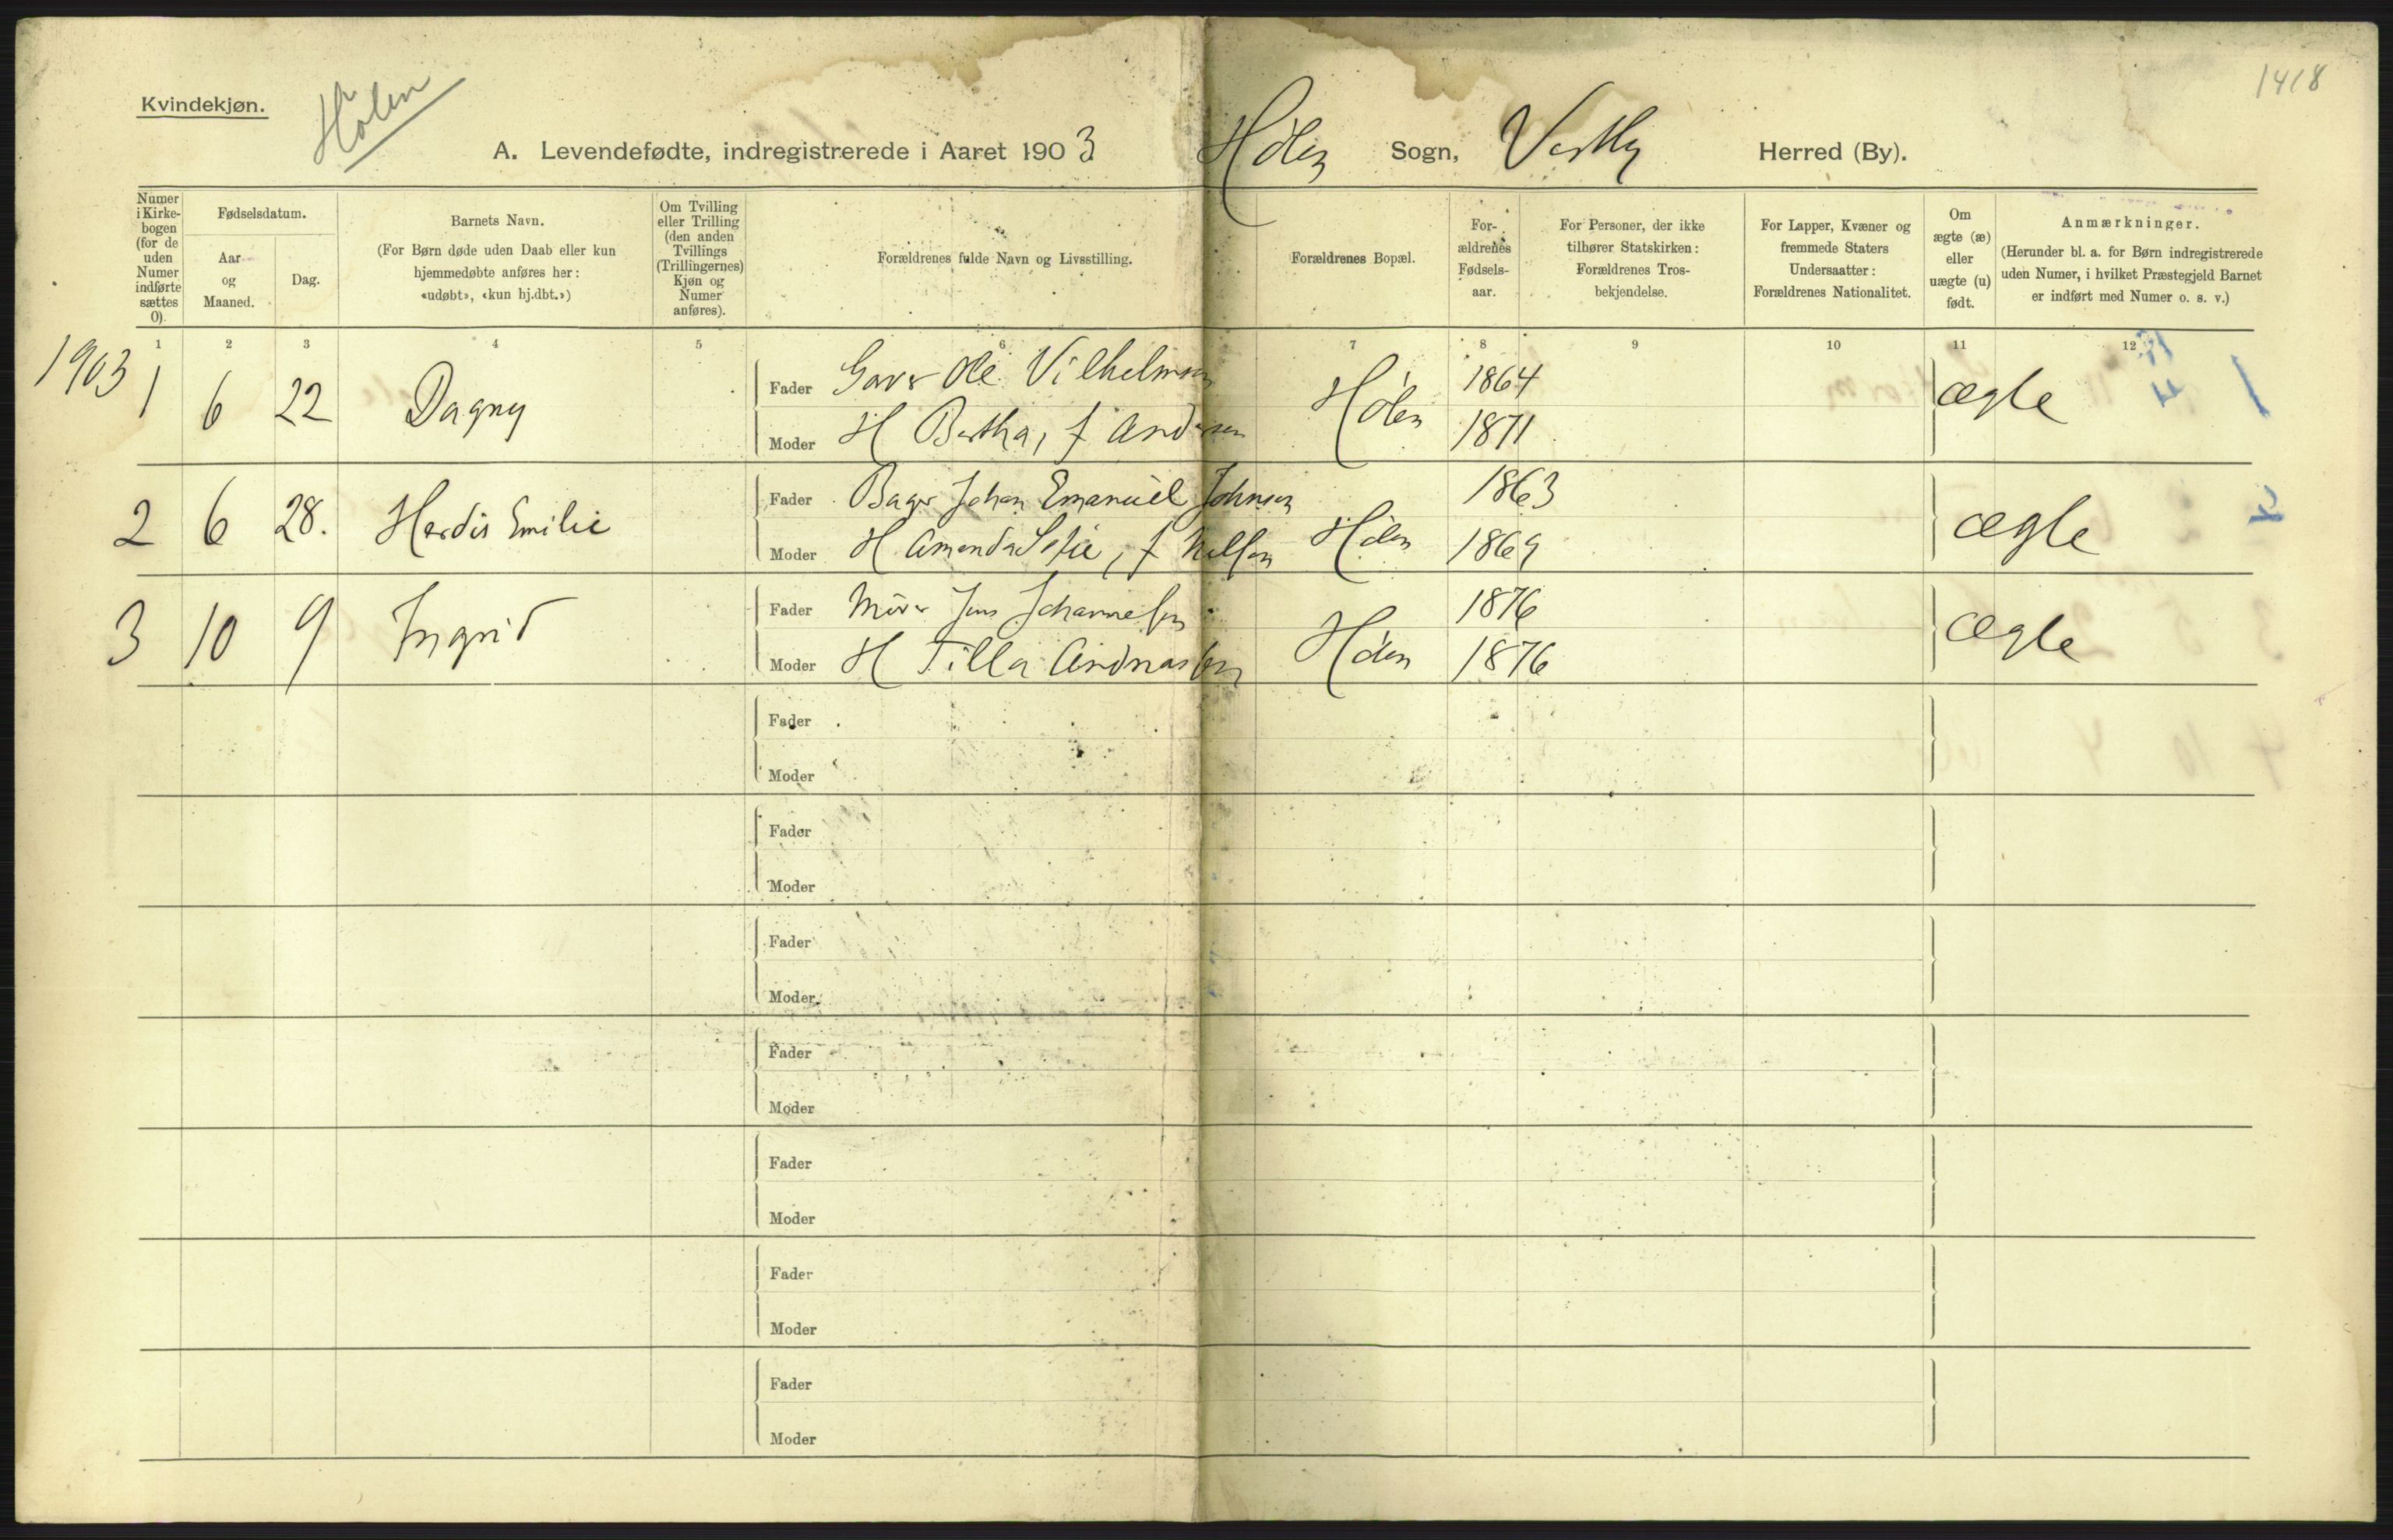 1418
Kvindekjøn.
Hølen
A. Levendefødte, indregistrerede i Aaret 1903 Hølen Sogn, Vestby Herred (By).
Numer i Kirkebogen (for de uden Numer indførte sættes 0).
Fødselsdatum.
Aar og Maaned.
Dag.
Barnets Navn.
(For Børn døde uden Daab eller kun hjemmedøbte anføres her: «udøbt», «kun hj.dbt.»)
Om Tvilling eller Trilling (den anden Tvillings (Trillingernes) Kjøn og Numer anføres).
Forældrenes fulde Navn og Livsstilling.
Forældrenes Bopæl.
Forældrenes Fødselsaar.
For Personer, der ikke tilhører Statskirken: Forældrenes Trosbekjendelse.
For Lapper, Kvæner og fremmede Staters Undersaatter: Forældrenes Nationalitet.
Om ægte (æ) eller uægte (u) født.
Anmærkninger.
(Herunder bl. a. for Børn indregistrerede uden Numer, i hvilket Præstegjeld Barnet er indført med Numer o. s. v.)
1 2 3 4 5 6 7 8 9 10 11 12
1903
1 6 22 Dagny
Fader Garver Ole Vilhelmsen 1864
Moder H Bertha, f Andersen 1871
Hølen ægte 1
2 6 28. Herdis Emilie
Fader Bager Johan Emanuel Johnsen 1863
Moder H Amanda Sofie, f Nilsen 1869
Hølen ægte 2
3 10 9 Ingrid
Fader Murer Jens Johannesen 1876
Moder H Tilla Andreasen 1876
Hølen ægte
Fader
Moder
Fader
Moder
Fader
Moder
Fader
Moder
Fader
Moder
Fader
Moder
Fader
Moder